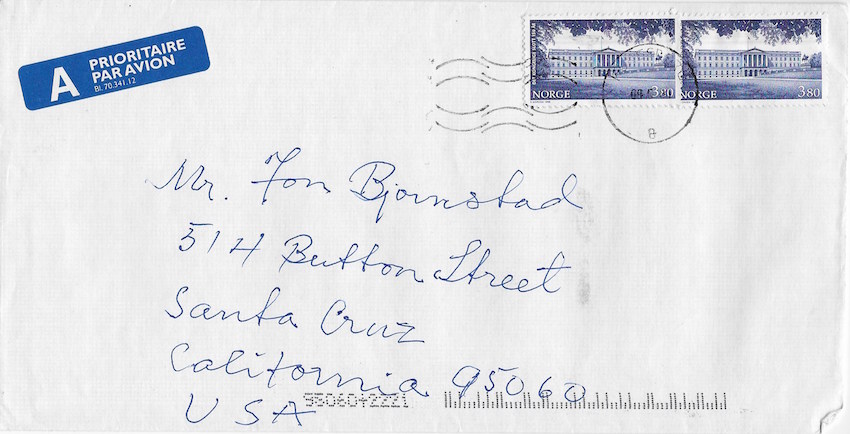 A PRIORITAIRE
PAR AVION
Bl. 70.341.12
NORGE 3.80
NORGE 3.80
Mr. Jon Bjornstad
514 Button Street
Santa Cruz
California 95060
USA
95060+2221